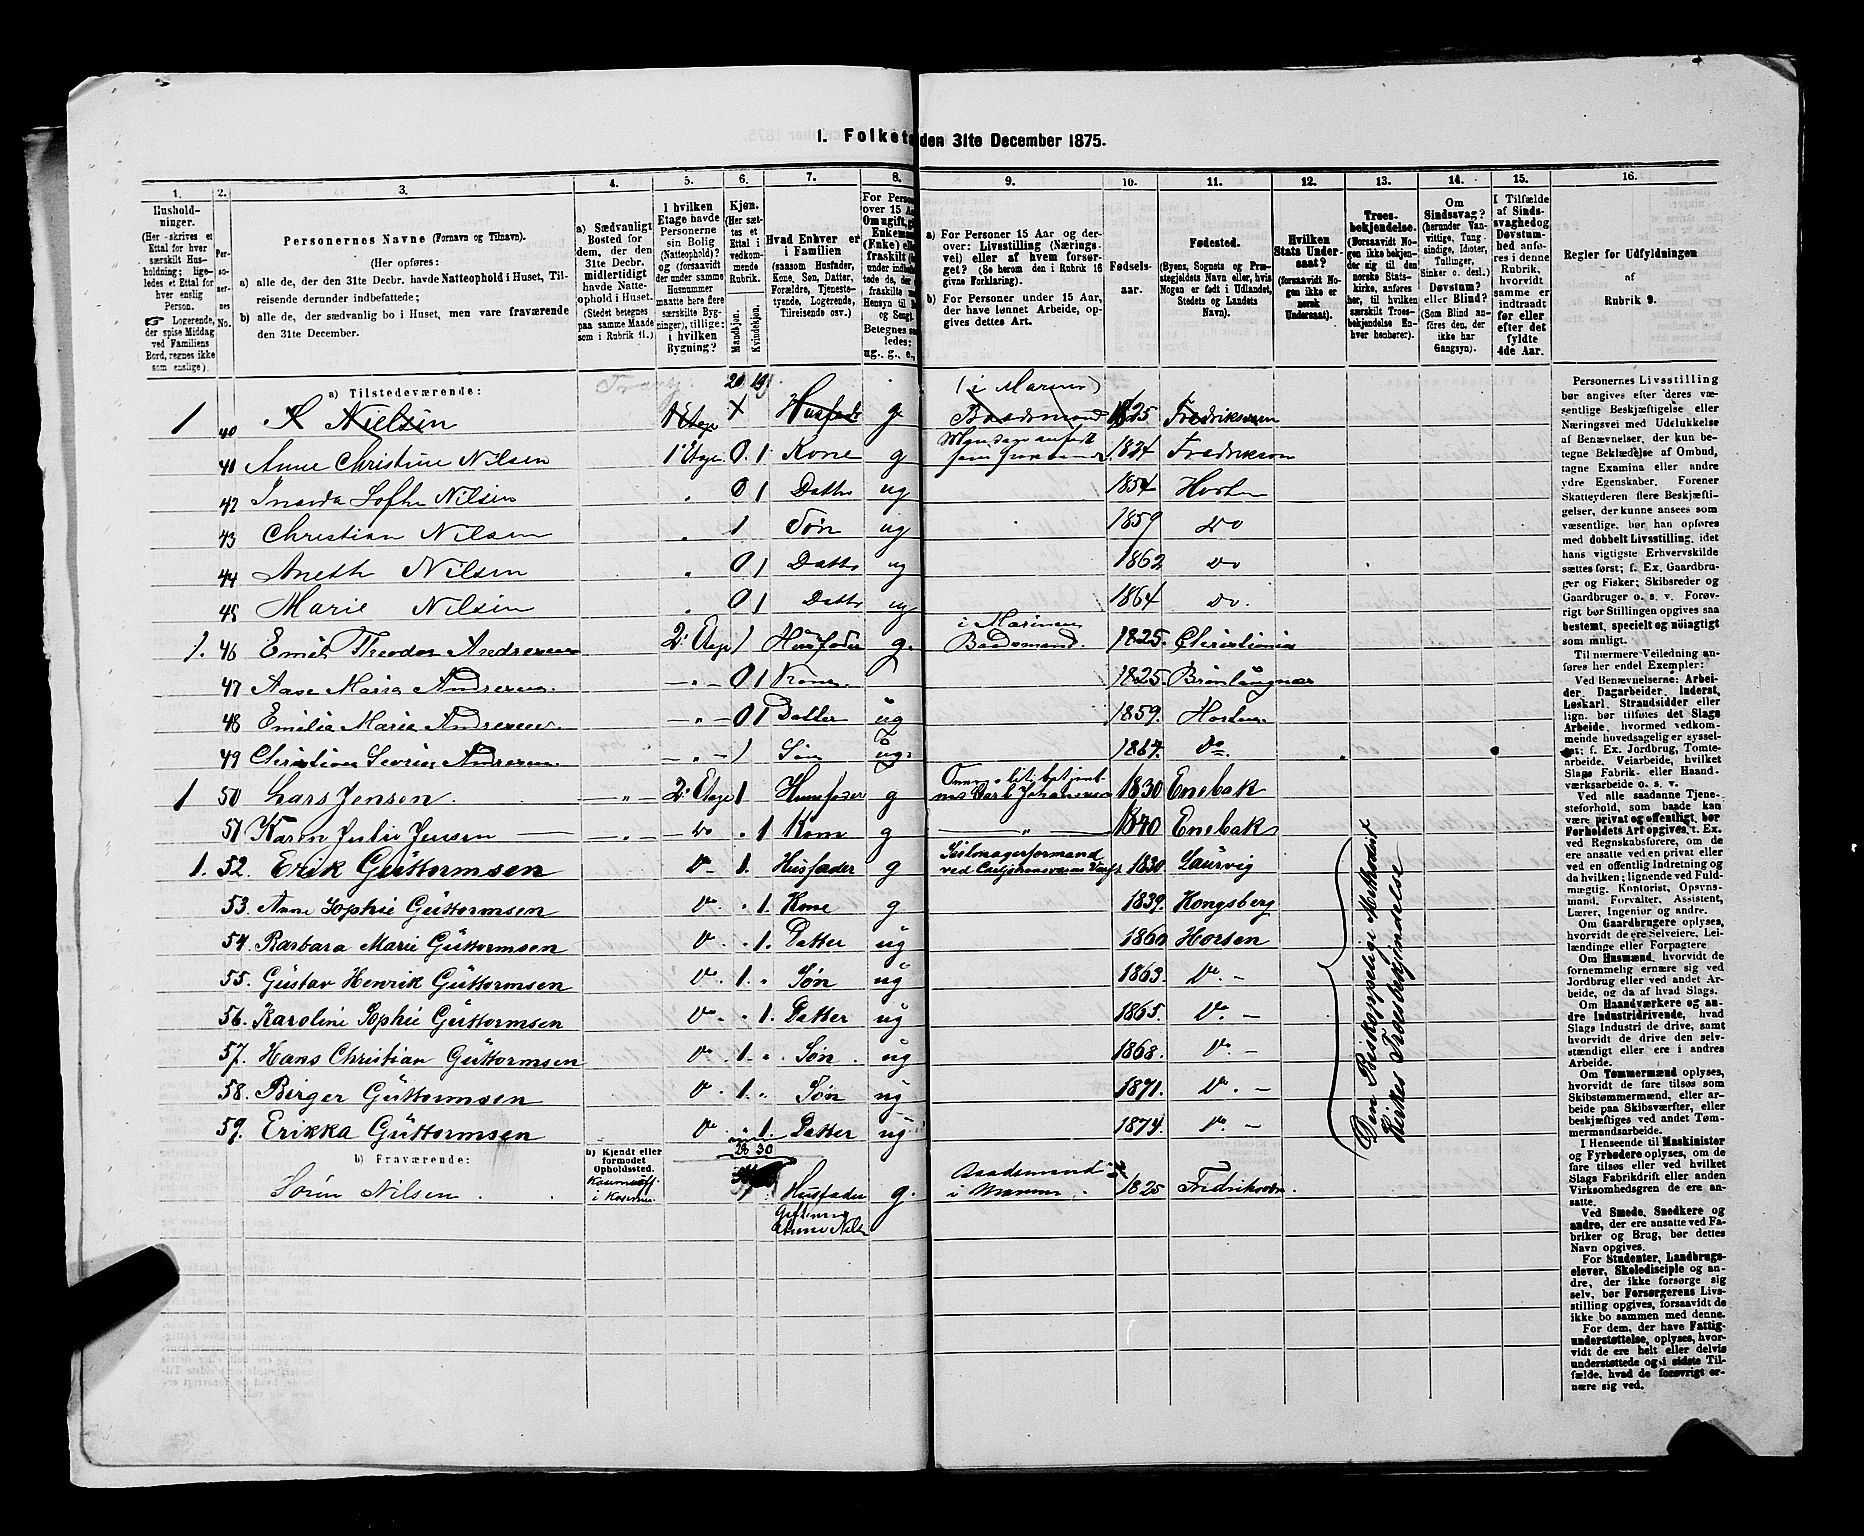 1. Folket den 31te December 1875.
1. 2. 3. 4. 5. 6. 7. 8. 9. 10. 11. 12. 13. 14. 15. 16.
Hushold-
ninger.
(Her skrives et
Ettal for hver
særskilt Hus-
holdning; lige-
ledes et Ettal for
hver enslig
Person.
☞ Logerende,
der spise Middag
ved Familiens
Bord, regnes ikke
som enslige).
Per-
so-
ner-
nes
No.
Personernes Navne (Fornavn og Tilnavn).
(Her opføres:
a) alle de, der den 31te Decbr. havde Natteophold i Huset, Til-
reisende derunder indbefattede;
b) alle de, der sædvanlig bo i Huset, men vare fraværende
den 31te December.
a) Sædvanligt
Bosted for
dem, der den
31te Decbr.
midlertidigt
havde Natte-
ophold i Huset.
(Stedet betegnes
paa samme Maade
som i Rubrik 11.)
I hvilken
Etage havde
Personerne
sin Bolig
(Natteophold)?
og (forsaavidt
der under samme
Husnummer
maatte høre flere
særskilte Byg-
ninger), tillige:
i hvilken
Bygning?
Kjøn.
(Her sæt-
tes et
Ettal i
vedkom-
mende
Rubrik.
Mandkjøn.
Kvindekjøn.
Hvad Enhver er
i Familien
(saasom Husfader,
Kone, Søn, Datter,
Forældre, Tjeneste-
tyende, Logerende,
Tilreisende osv.)
For Person
over 15 Aa
Om ugift, g
Enkema
(Enke) ell
fraskilt
under indb
tede de, der
fraskilte
Hensyn til B
og Seng).
Betegnes s
ledes:
ug., g., e.,
a) For Personer 15 Aar og der-
over: Livsstilling (Nærings-
vei) eller af hvem forsør-
get? (Se herom den i Rubrik 16
givne Forklaring).
b) For Personer under 15 Aar,
der have lønnet Arbeide, op-
gives dettes Art.
Fødsels-
aar.
Fødested.
(Byens, Sognets og Præ-
stegjeldets Navn eller, hvis
Nogen er født i Udlandet,
Stedets og Landets
Navn).
Hvilken
Stats Under-
saat?
(forsaavidt No-
gen ikke er
norsk
Undersaat).
Troes-
bekjendelse.
(Forsaavidt No-
gen ikke bekjen-
der sig til den
norske Stats-
kirke, anføres
her, til hvilken
særskilt Troes-
bekjendelse En-
hver henhører).
Om
Sindssvag?
(herunder Van-
vittige, Tung-
sindige, Idioter,
Tullinger,
Sinker o. desl.)
Døvstum?
eller Blind?
(Som Blind an-
føres den, der
ikke har
Gangsyn).
I Tilfælde
af Sinds-
svaghed og
Døvstum-
hed anfø-
res i denne
Rubrik,
hvorvidt
samme er
indtraadt
før eller
efter det
fyldte
4de Aar.
Regler for Udfyldningen
af
Rubrik 9.
a) Tilstedeværende:
20 19
1 40 Nielsen 1 Etage x Husfader g (i Marinen) Baadsmand 1825 Fredriksværn
41 Anne Christine Nilsen 1 Etage 0. 1 Kone g 1834 Fredriksvern
42 Sofhe Nilsen " 0 1 Datter ug 1854 Horten
43 Christian Nilsen " 1 Søn ug 1859 Do
44 Aneth Nilsen " 0 1 Datter ug 1862 Do
45 Marie Nilsen " 0 1 Datter ug 1864 Do.
1. 46 Emil Theodor Andresen 2. Etage 1 Husfader g. i Marinen Baadsmand. 1825. Christiania
47 Aase Maria Andresen - " - 0 1 Kone. 1825. Brønlaugnæs
48 Emilia Maria Andresen - " - 0 1 Datter ug 1859. Horten
49 Christian Severin Andresen - " - 1 Søn ug. 1867. Do
1 50 Lars Jensen. " 2. Etage 1 Huusfader g Carl Johansværn 1830 Enebak
51 Karen Julie Jensen " Do " 1 Kone g " 1840 Enebak
1. 52. Erik Guttormsen Do 1. Husfader g Seilmagerformand
ved Carljohansværns Værft 1830 Laurvig
53. Anne Sophie Guttormsen Do " 1. Kone g 1839. Kongsberg
54. Barbara Marie Guttormsen Do " 1. Datter ug 1860 Horten
55. Gustav Henrik Guttormsen Do 1. " Søn ug 1863. Do -
56. Karoline Sophie Guttormsen Do " 1. Datter ug 1865. Do -
57. Hans Christian Guttormsen Do 1. " Søn ug 1868. Do -
58. Birger Guttormsen Do 1. " Søn ug 1871. Do -
59. Erikka Guttormsen Do " 1. Datter ug 1874. Do -
Den Biskoppelige Methodist
Kirkes Troesbekjendelse
b) Fraværende:
b) Kjendt eller
formodet
Opholdssted.
26 30
Søren Nilsen i Kaserne Husfader g. Baadsmand
i Marinen 1825 Fredriksværn.
Gift med
Anne Nilsen
Personernes Livsstilling
bør angives efter deres væ-
sentlige Beskjæftigelse eller
Næringsvei med Udelukkelse
af Benævnelser, der kun be-
tegne Beklædelse af Ombud,
tagne Examina eller andre
ydre Egenskaber. Forener
Skatteyderen flere Beskjæfti-
gelser, der kunne ansees som
væsentlige, bør han opføres
med dobbelt Livsstilling, idet
hans vigtigste Erhvervskilde
sættes først; f. Ex. Gaardbru-
ger og Fisker; Skibsreder og
Gaardbruger o. s. v. Forøv-
rigt bør Stillingen opgives saa
bestemt, specielt og nøiagtigt
som muligt.
Til nærmere Veiledning an-
føres her endel Exempler:
Ved Benævnelserne: Arbei-
der, Dagarbeider, Inderst,
Løskarl, Strandsidder eller
lign. bør tilføies det Slags
Arbeide, hvormed vedkom-
mende hovedsagelig er syssel-
sat; f. Ex. Jordbrug, Tomte-
arbeide, Veiarbeide, hvilket
Slags Fabrik- eller Haand-
værksarbeide o. s. v.
Ved alle saadanne Tjene-
steforhold, som baade kan
være privat og offentligt, bør
Forholdets Art opgives, f. Ex.
ved Regnskabsførere, om de
ere ansatte ved en privat eller
ved en offentlig Indretning og
da hvilken; lignende ved Fuld-
mægtig, Kontorist, Opsyns-
mand, Forvalter, Assistent,
Lærer, Ingeniør og andre.
Om Gaardbrugere oplyses,
hvorvidt de ere Selveiere, Lei-
lændinge eller Forpagtere.
Om Husmænd, hvorvidt de
fornemmelig ernære sig ved
Jordbrug eller ved andet Ar-
beide, og da af hvad Slags.
Om Haandværkere og an-
dre Industridrivende, hvad
Slags Industri de drive, samt
hvorvidt de drive den selv-
stændigt eller ere i andres
Arbeide.
Om Tømmermænd oplyses,
hvorvidt de fare tilsøs som
Skibstømmermænd, eller ar-
beide paa Skibsværfter, eller
beskjæftiges ved andet Tøm-
mermandsarbeide.
I Henseende til Maskinister
og Fyrbødere oplyses, om de
fare tilsøs eller ved hvilket
Slags Fabrikdrift eller anden
Virksomhedsgren de ere an-
satte.
Ved Smede, Snedkere og
andre, der ere ansatte ved Fa-
briker og Brug, bør dettes
Navn opgives.
For Studenter, Landbrugs-
elever, Skoledisciple og an-
dre, der ikke forsørge sig
selv, bør Forsørgerens Livs-
stilling opgives, forsaavidt de
ikke bo sammen med denne.
For dem, der have Fattig-
understøttelse, oplyses, hvor-
vidt de ere helt eller delvis
understøttede og i sidste Til-
fælde, hvad de forøvrigt er-
nære sig ved.